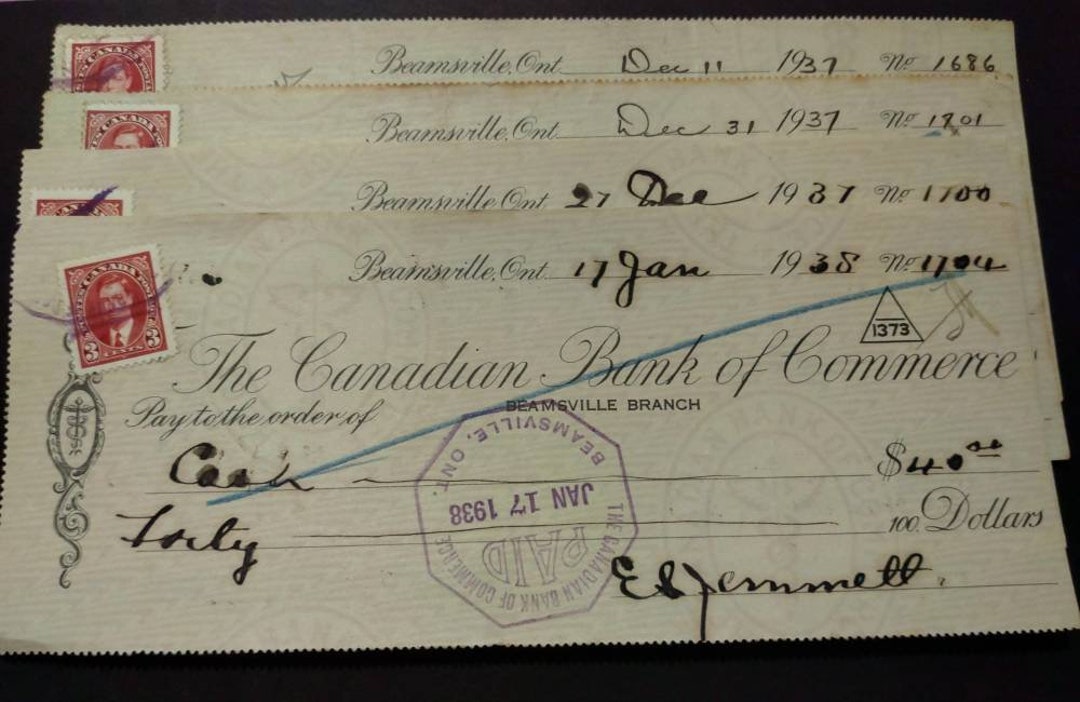 Beamsville, Ont. Dec 11 1937 No 1686
Beamsville, Ont. Dec 31 1937 No 1701
Beamsville, Ont. 27 Dec 1937 No 1700
Beamsville, Ont. 17 Jan 1938 No 1704
CANADA
3 3
1373
The Canadian Bank of Commerce
BEAMSVILLE BRANCH
Pay to the order of
Cash $40.00
Forty 100 Dollars
THE CANADIAN BANK OF COMMERCE
PAID
JAN 17 1938
BEAMSVILLE, ONT.